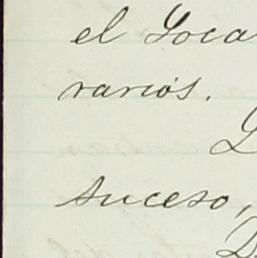 el Loca
varios.
suceso,